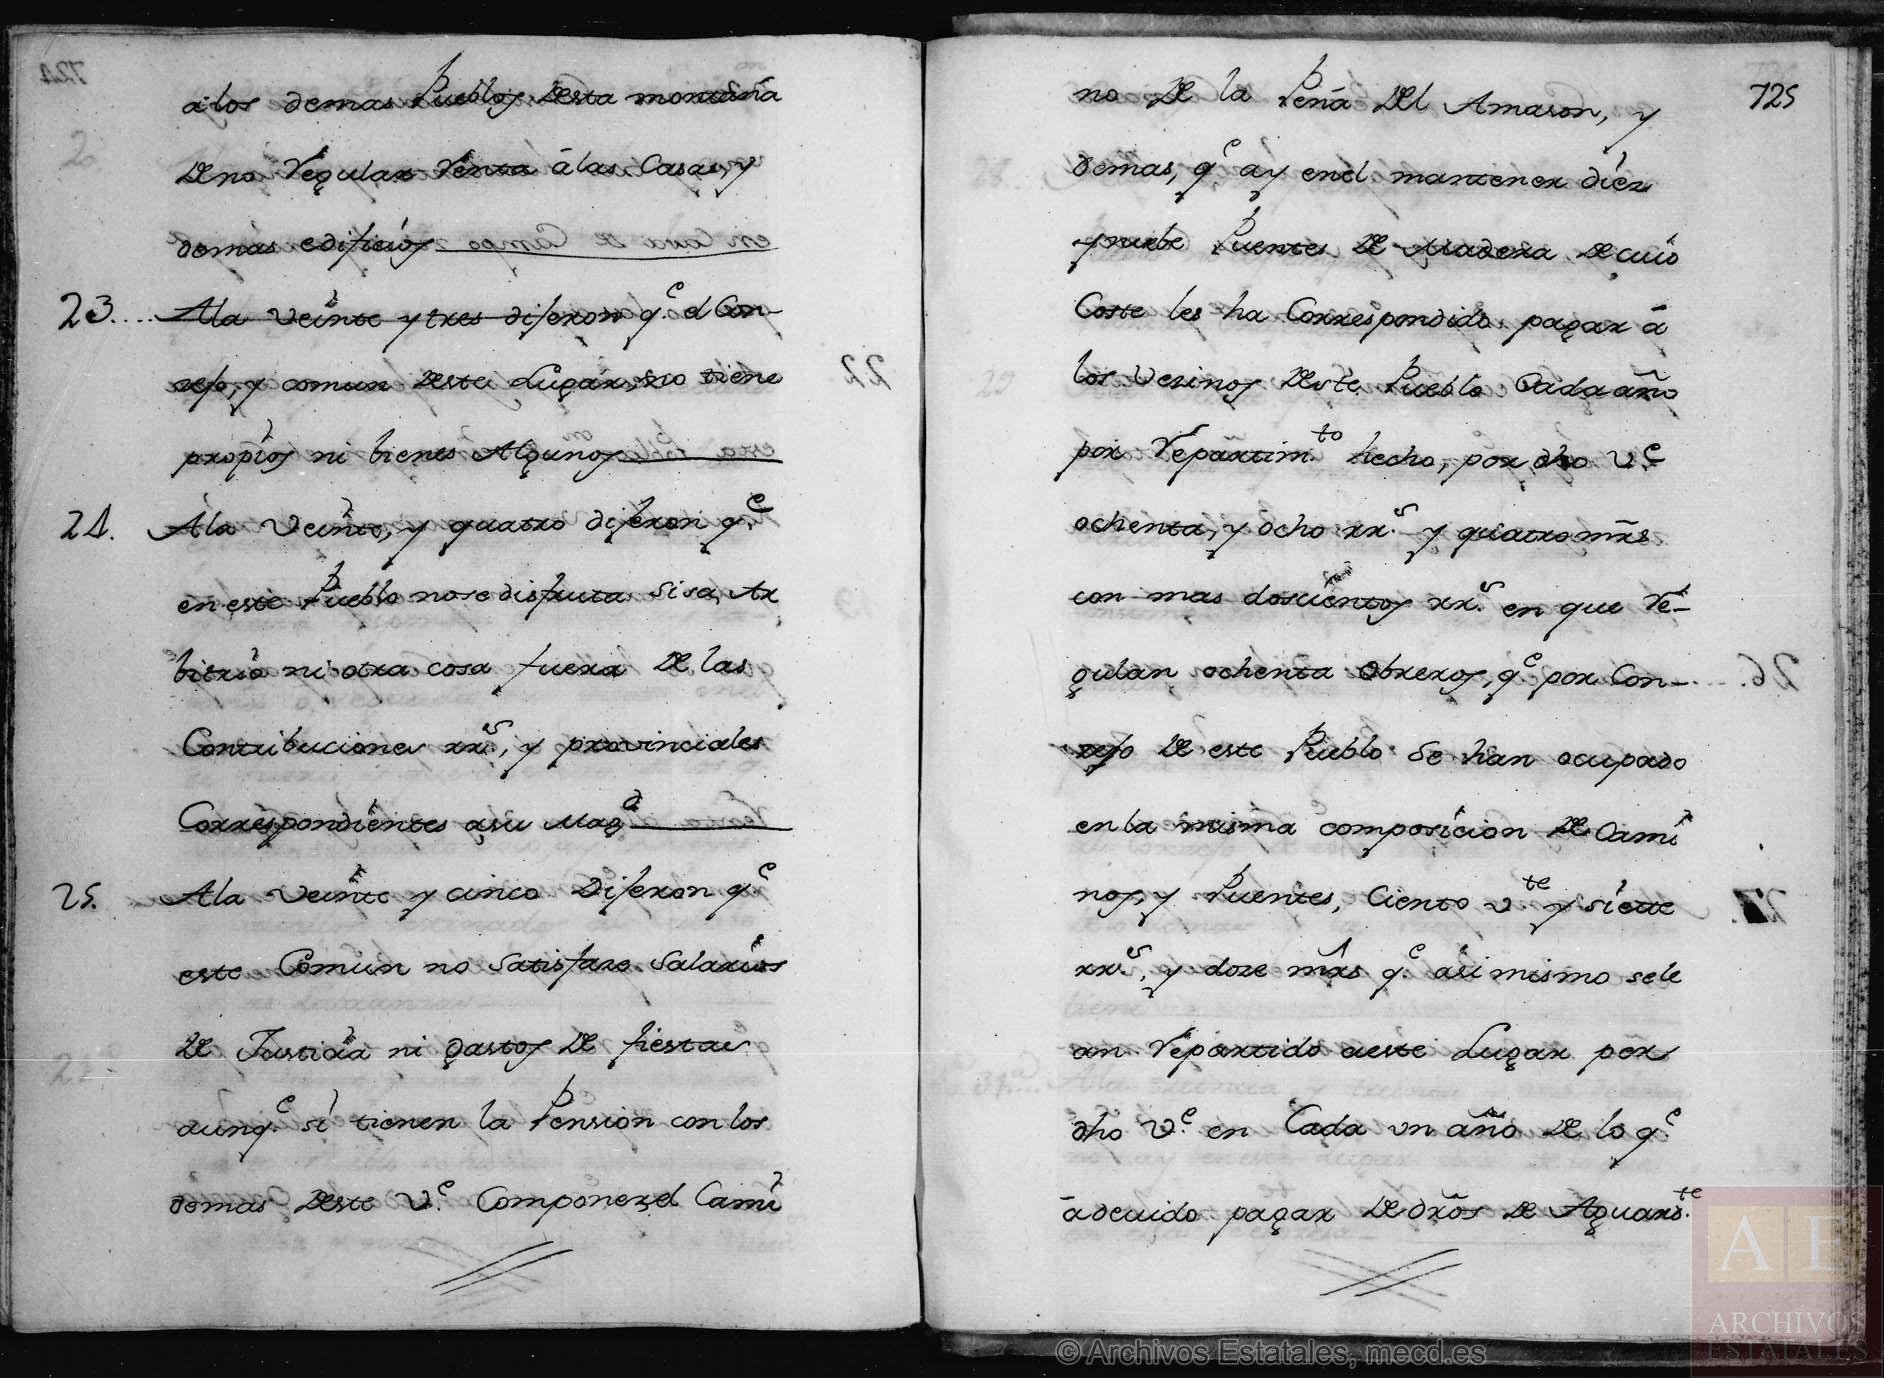 a los demas Pueblos desta montaña
de no regular renta á las Casas, y
demás edificios
23.... A la veinte y tres dijeron q.e el Con-
zejo, y comun deste Lugar, no tiene
propios ni bienes Algunos
24. A la veinte, y quatro dijeron q.e
en este Pueblo no se disfruta sisa, Ar
bitrio ni otra cosa fuera de las
Contribuciones rr.s, y provinciales
Correspondientes a su Mag.d
25. A la veinte y cinco Dijeron q.e
este Comun no satisfaze salarios
de Justicia ni gastos de fiestas
aunq.e sí tienen la Pension con los
demas deste V.e Componer el Cami
725
no de la Peña del Amason, y
demas, q.e ay en el mantener diez
y nuebe Puentes de Madera de cuio
Coste les ha Correspondido pagar á
los vezinos deste Pueblo Cada año
por repartim.to hecho, por dho V.e
ochenta, y ocho rr.s y quatro mrs
con mas doscientos rr.s en que re-
gulan ochenta obreros, q.e por Con-
zejo de este Pueblo se han ocupado
en la misma composicion de Cami
nos, y Puentes, Ciento v.te y siette
rr.s, y doze mrs q.e asi mismo se le
an repartido a este Lugar por
dho V.e en Cada un año de lo q.e
á devido pagar de dros de Aguard.te
AE
ARCHIVOS
ESTATALES
© Archivos Estatales, mecd.es